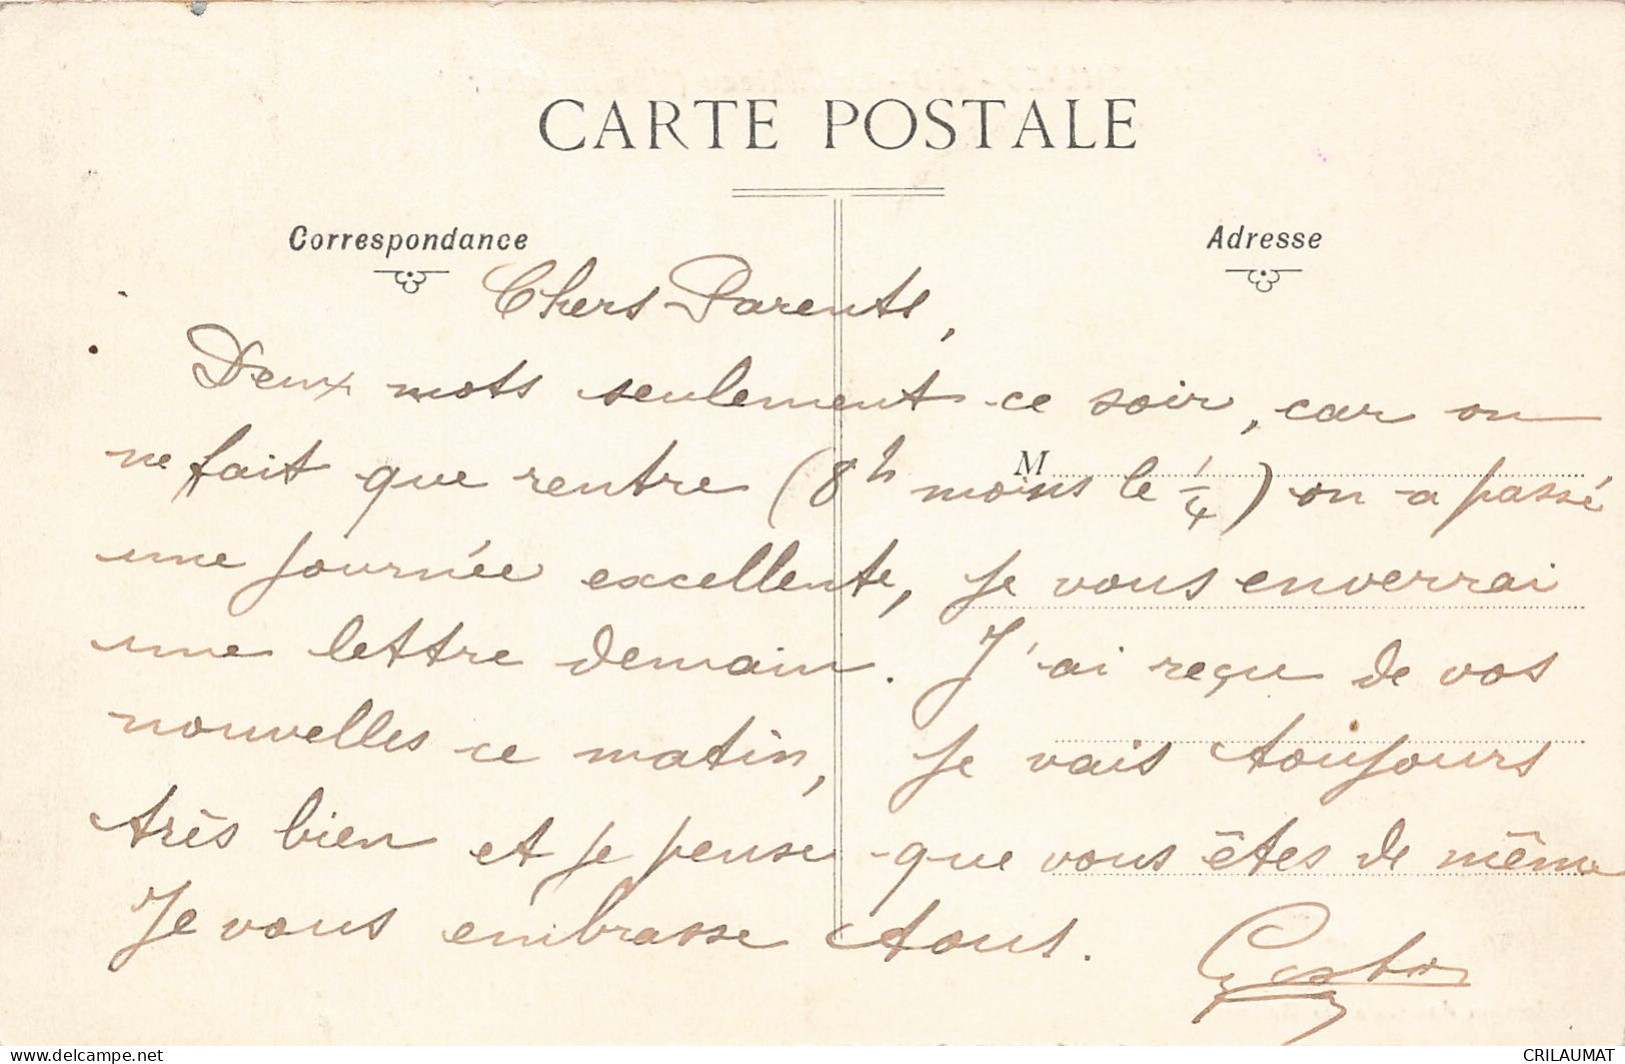 CARTE POSTALE
Correspondance
Adresse
Chers Parents,
Deux mots seulement ce soir, car on
ne fait que rentre (8h moins le 1/4) on a passé
M
une journée excellente, je vous enverrai
une lettre demain. J'ai reçu de vos
nouvelles ce matin, je vais toujours
très bien et je pense que vous êtes de même
Je vous embrasse tous.
Gaston
delcampe.net
CRILAUMAT